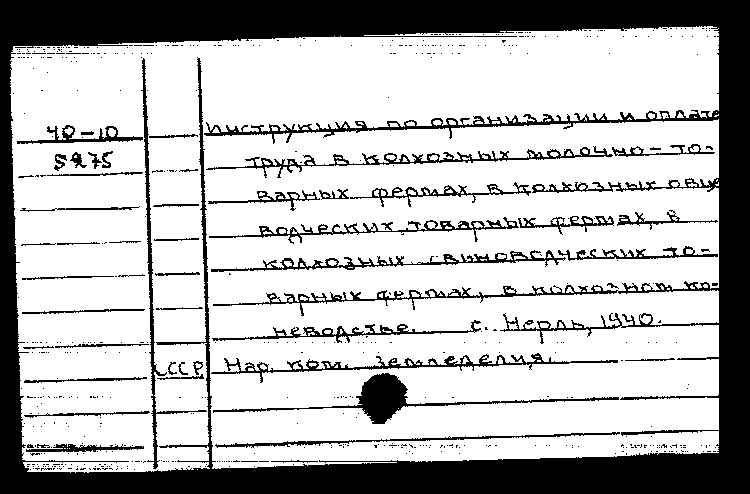 40-10 Инструкция по организации и оплате
5275 труда в колхозных молочно-то-
варных фермах, в колхозных овце
водческих товарных фермах, в
колхозных свиноводческих то-
варных фермах, в колхозном ко-
неводстве. с. Нерль, 1940.
СССР Нар. ком. земледелия.